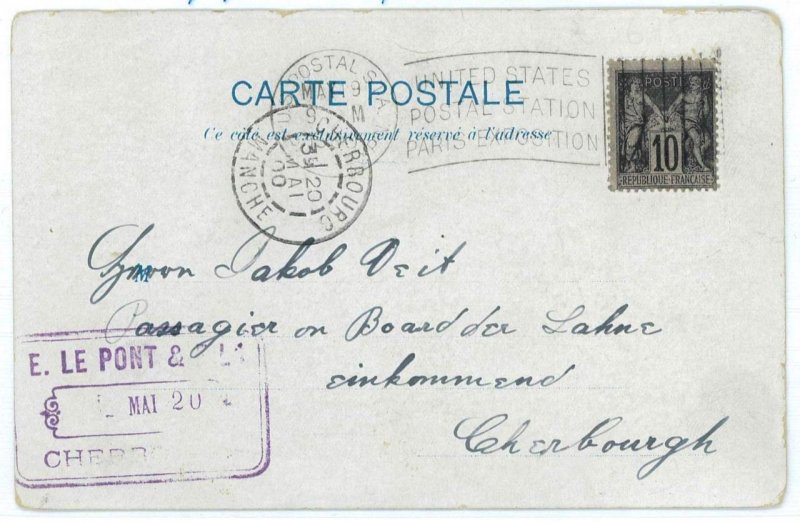 CARTE POSTALE
Ce côté est exclusivement réservé à l'adresse
POSTAL STA.
MAY 9
9 M
UNITED STATES
POSTAL STATION
PARIS EXPOSITION
POSTE
10
REPUBLIQUE FRANÇAISE
CHERBOURG
20
MAI
00
MANCHE
Herrn Jakob Veit
Passagier on Board der Lahne
einkommend
Cherbourgh
E. LE PONT &
MAI 20
CHERB